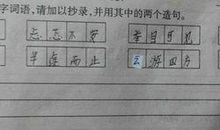 字词语,请加以抄录,并用其中的两个造句。
忐忑不安 目可见
半途而止 云游四方